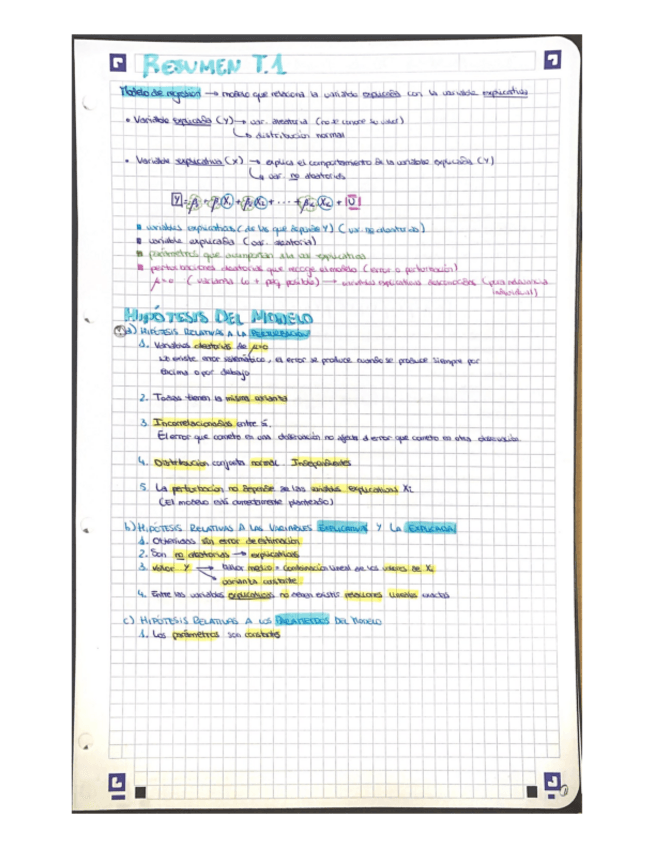 RESUMEN T.1
Modelo de regresión → modelo que relaciona la variable explicada con la variable explicativa
• Variable explicada (Y) → var. aleatoria (no se conoce su valor)
↳ distribución normal
• Variable explicativa (X) → explica el comportamiento de la variable explicada (Y)
↳ var. no aleatoria
variables explicativas (de las que depende Y) (var. no aleatoria)
variable explicada (var. aleatoria)
parámetros que acompañan a la var explicativa
perturbaciones aleatorias que recoge el modelo (error o perturbación)
μ=0 (varianza lo + peq posible) → variables explicativas desconocidas (poca relevancia
individual)
HIPÓTESIS DEL MODELO
a) HIPÓTESIS RELATIVAS A LA PERTURBACIÓN
1. Variables aleatorias de μ=0
No existe error sistemático, el error se produce cuando se produce siempre por
encima o por debajo
2. Todas tienen la misma varianza
3. Incorrelacionadas entre sí.
El error que cometo en una observación no afecta al error que cometo en otra observación
4. Distribución conjunta normal. Independientes
5. La perturbación no depende de las variables explicativas Xi
(El modelo está correctamente planteado)
b) HIPÓTESIS RELATIVAS A LAS VARIABLES EXPLICATIVAS Y LA EXPLICADA
1. Obtenidas sin error de estimación
2. Son no aleatorias → explicativas
3. Valor Y → Valor medio = combinación lineal de los valores de Xi
→ varianza constante
4. Entre las variables explicativas no deben existir relaciones lineales exactas
c) HIPÓTESIS RELATIVAS A LOS PARÁMETROS DEL MODELO
1. Los parámetros son constantes